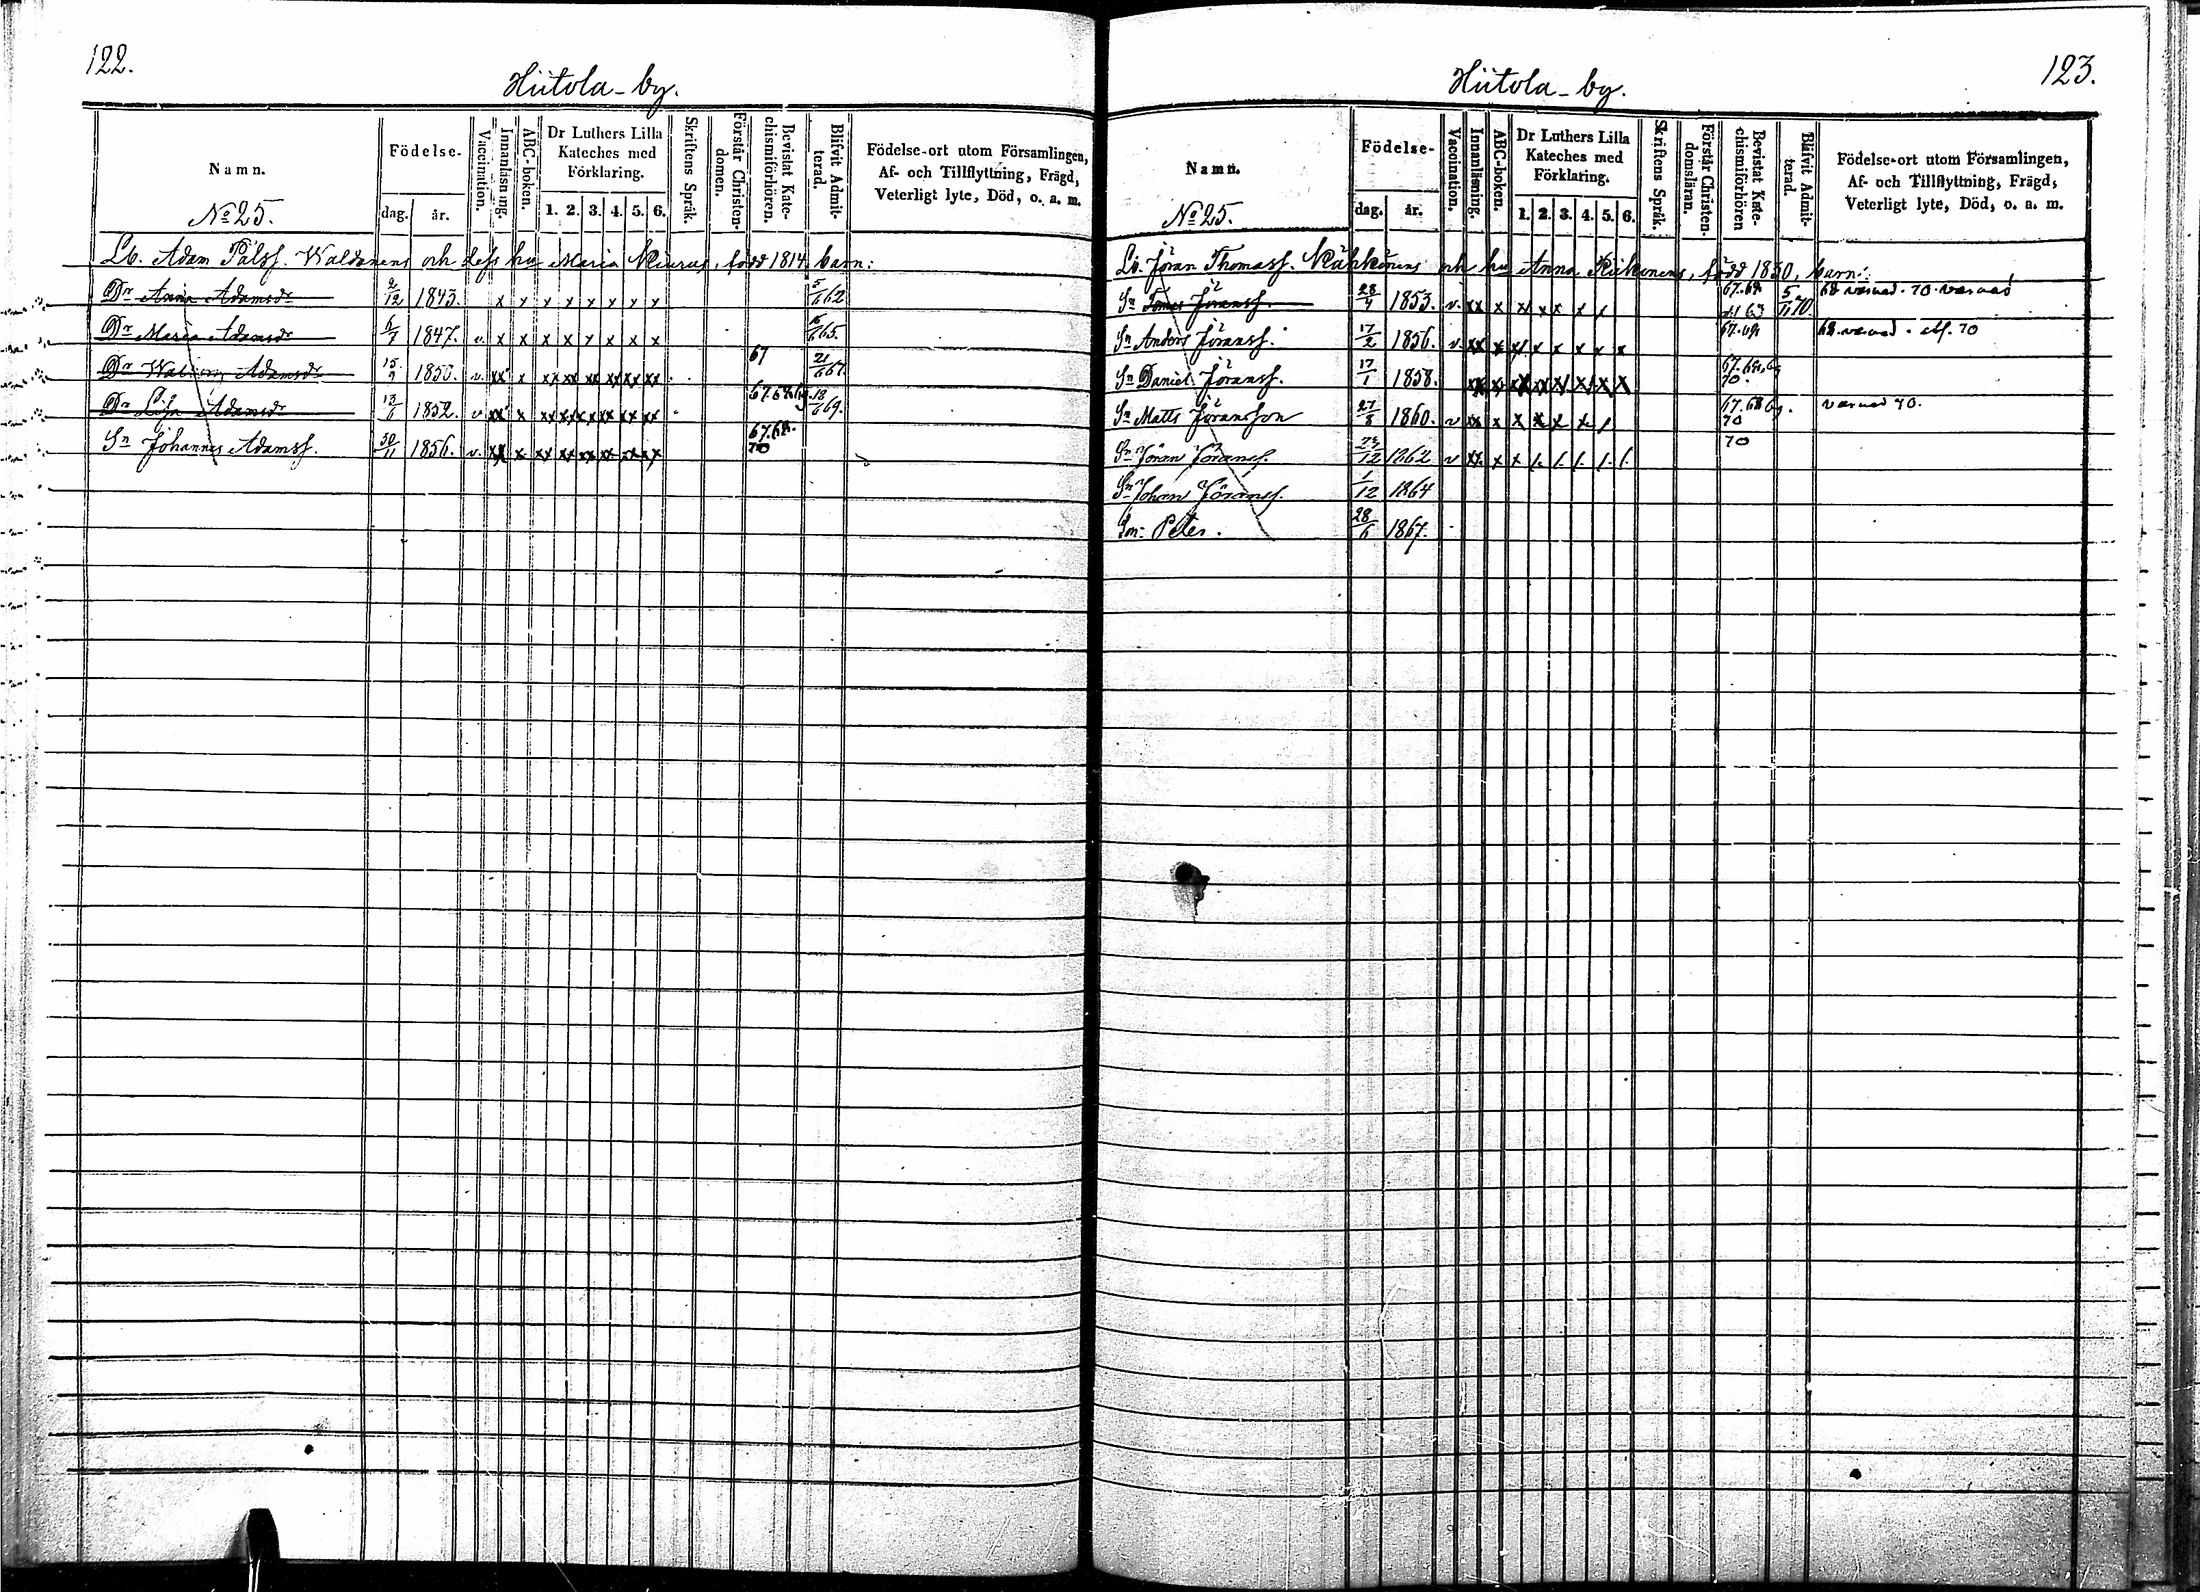 122.
Hiitola-by.
Namn.
No 25.
Födelse-
dag. år.
Vaccination.
Innanläsning.
ABC-boken.
Dr Luthers Lilla Kateches med Förklaring.
1. 2. 3. 4. 5. 6.
Skriftens Språk.
Förstår Christen-domen.
Bevistat Kate-chismiförhören.
Blifvit Admit-terad.
Födelse-ort utom Församlingen,
Af- och Tillflyttning, Frägd,
Veterligt lyte, Död, o. a. m.
Lb. Adam Pålss. Waldanens och dess hu Maria Kiurus, född 1814. barn:
Dr Anna Adamsdr 2/12 1843. x x x x x x x x 5/6 62
Dr Maria Adamsdr 6/7 1847. v. x x x x x x x x 65.
Dr Adamsdr 1850. v. xx x xx xx xx xx xx xx 67 21/6 67.
Dr Lisa Adamsdr 13/6 1852. v xx x xx xx xx xx xx xx 67.68.69 18/6 69.
Sn Johannes Adamss. 30/11 1856. v. xx x xx xx xx xx xx xx 67.68. 70
123.
Hiitola-by.
Namn.
No 25.
Födelse-
dag. år.
Vaccination.
Innanläsning.
ABC-boken.
Dr Luthers Lilla Kateches med Förklaring.
1. 2. 3. 4. 5. 6.
Skriftens Språk.
Förstår Christen-domsläran.
Bevistat Kate-chismiförhören
Blifvit Admit-terad.
Födelse-ort utom Församlingen,
Af- och Tillflyttning, Frägd,
Veterligt lyte, Död, o. a. m.
Lb. Jöran Thomass. Kähkönens och hu Anna född 1830, barn:
Sn Tomas Jöranss. 28/4 1853. v. xx x x x x x x 67.68 5/6 70. 68 varnad. 70. varnad
Sn Anders Jöranss. 17/2 1856. v. xx x x x x x x x 68. varnad. 70
Sn Daniel Jöranss. 17/1 1858. xx x x x x x x x 67.68.69 70.
Sn Matts Jöransson 27/8 1860. v xx x x x x x / 67.68 69. 70 varnad 70.
Sn Jöran Jöranss. 1862 v xx x x /. /. /. /. /. 70
Sn Johan Jöranss. 1/12 1864
Son: Peter. 28/6 1867.